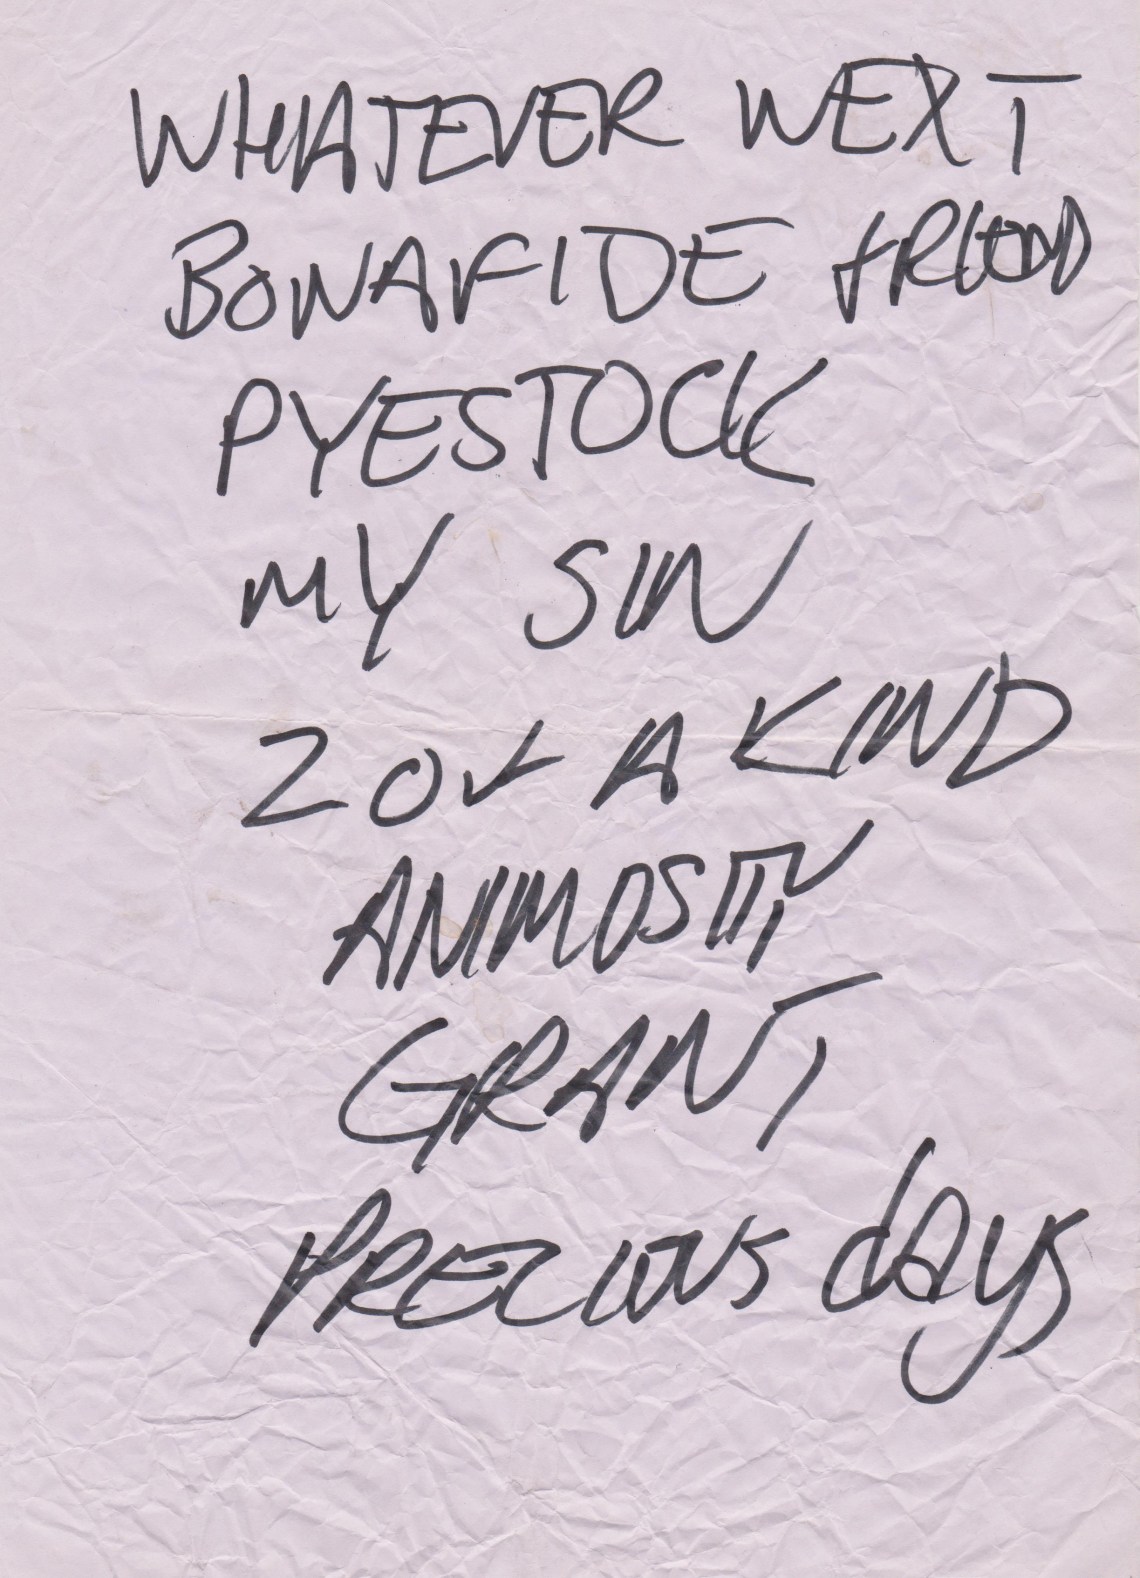 WHATEVER NEXT
BONAFIDE FRIEND
PYESTOCK
MY SIN
2 OF A KIND
ANIMOSITY
GRANT
PRECIOUS days